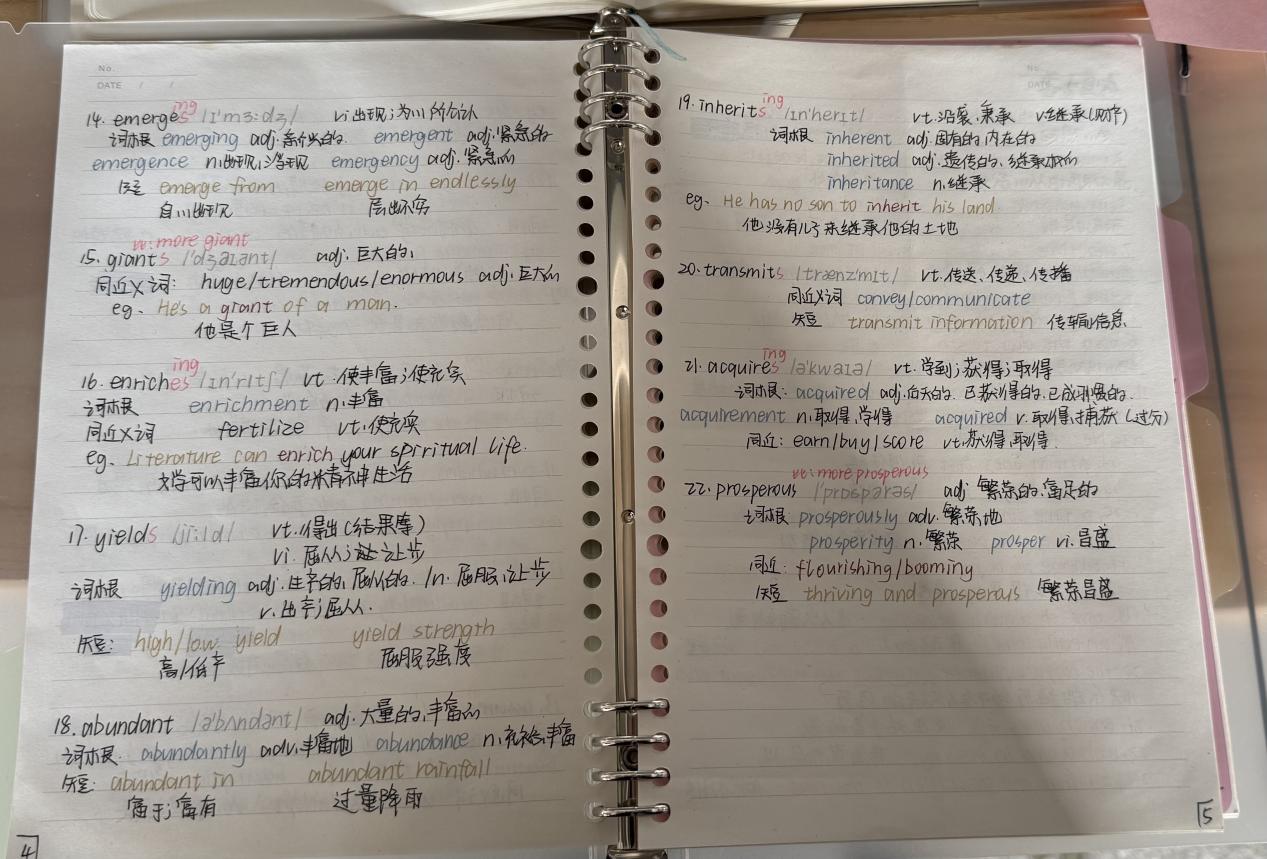 No.
DATE / /
14. emerges ing /ɪ'mɜ:dʒ/ vi 出现;为川所公认
词根 emerging adj.新兴的. emergent adj.紧急的
emergence n.出现,浮现 emergency adj.紧急的
短 emerge from emerge in endlessly
自川出现 层出不穷
比: more giant
15. giants /'dʒaɪənt/ adj. 巨大的,
同近义词: huge/tremendous/enormous adj.巨大的
eg. He's a giant of a man.
他是个巨人
16. enriches ing /ɪn'rɪtʃ/ vt.使丰富;使充实
词根 enrichment n.丰富
同近义词 fertilize vt.使充实
eg. Literature can enrich your spiritual life.
文学可以丰富你的精神生活
17. yields /ji:ld/ vt.得出(结果等)
vi.屈从;让步
词根 yielding adj.生产的,屈从的. /n.屈服,让步
v.出产;屈从.
短: high/low yield yield strength
高/低产 屈服强度
18. abundant /ə'bʌndənt/ adj.大量的,丰富的
词根. abundantly adv.丰富地 abundance n.充裕,丰富
短: abundant in abundant rainfall
富于;富有 过量降雨
4
No.
19. inherits ing /ɪn'herɪt/ vt.沿袭,秉承 v.继承(财产)
词根 inherent adj.固有的,内在的
inherited adj.遗传的,继承权的
inheritance n.继承
eg. He has no son to inherit his land.
他没有儿子来继承他的土地
20. transmits /trænz'mɪt/ vt.传送、传递、传播
同近义词 convey/communicate
短 transmit information 传输信息
21. acquires ing /ə'kwaɪə/ vt.学到;获得;取得
词根: acquired adj.后天的.已获得的.已成习惯的.
acquirement n.取得,学得 acquired v.取得,捕获(过分)
同近: earn/buy/score vt.获得,取得.
比: more prosperous
22. prosperous /'prɒspərəs/ adj.繁荣的,富足的
词根: prosperously adv.繁荣地
prosperity n.繁荣 prosper vi.昌盛
同近: flourishing/booming
短 thriving and prosperous 繁荣昌盛
5